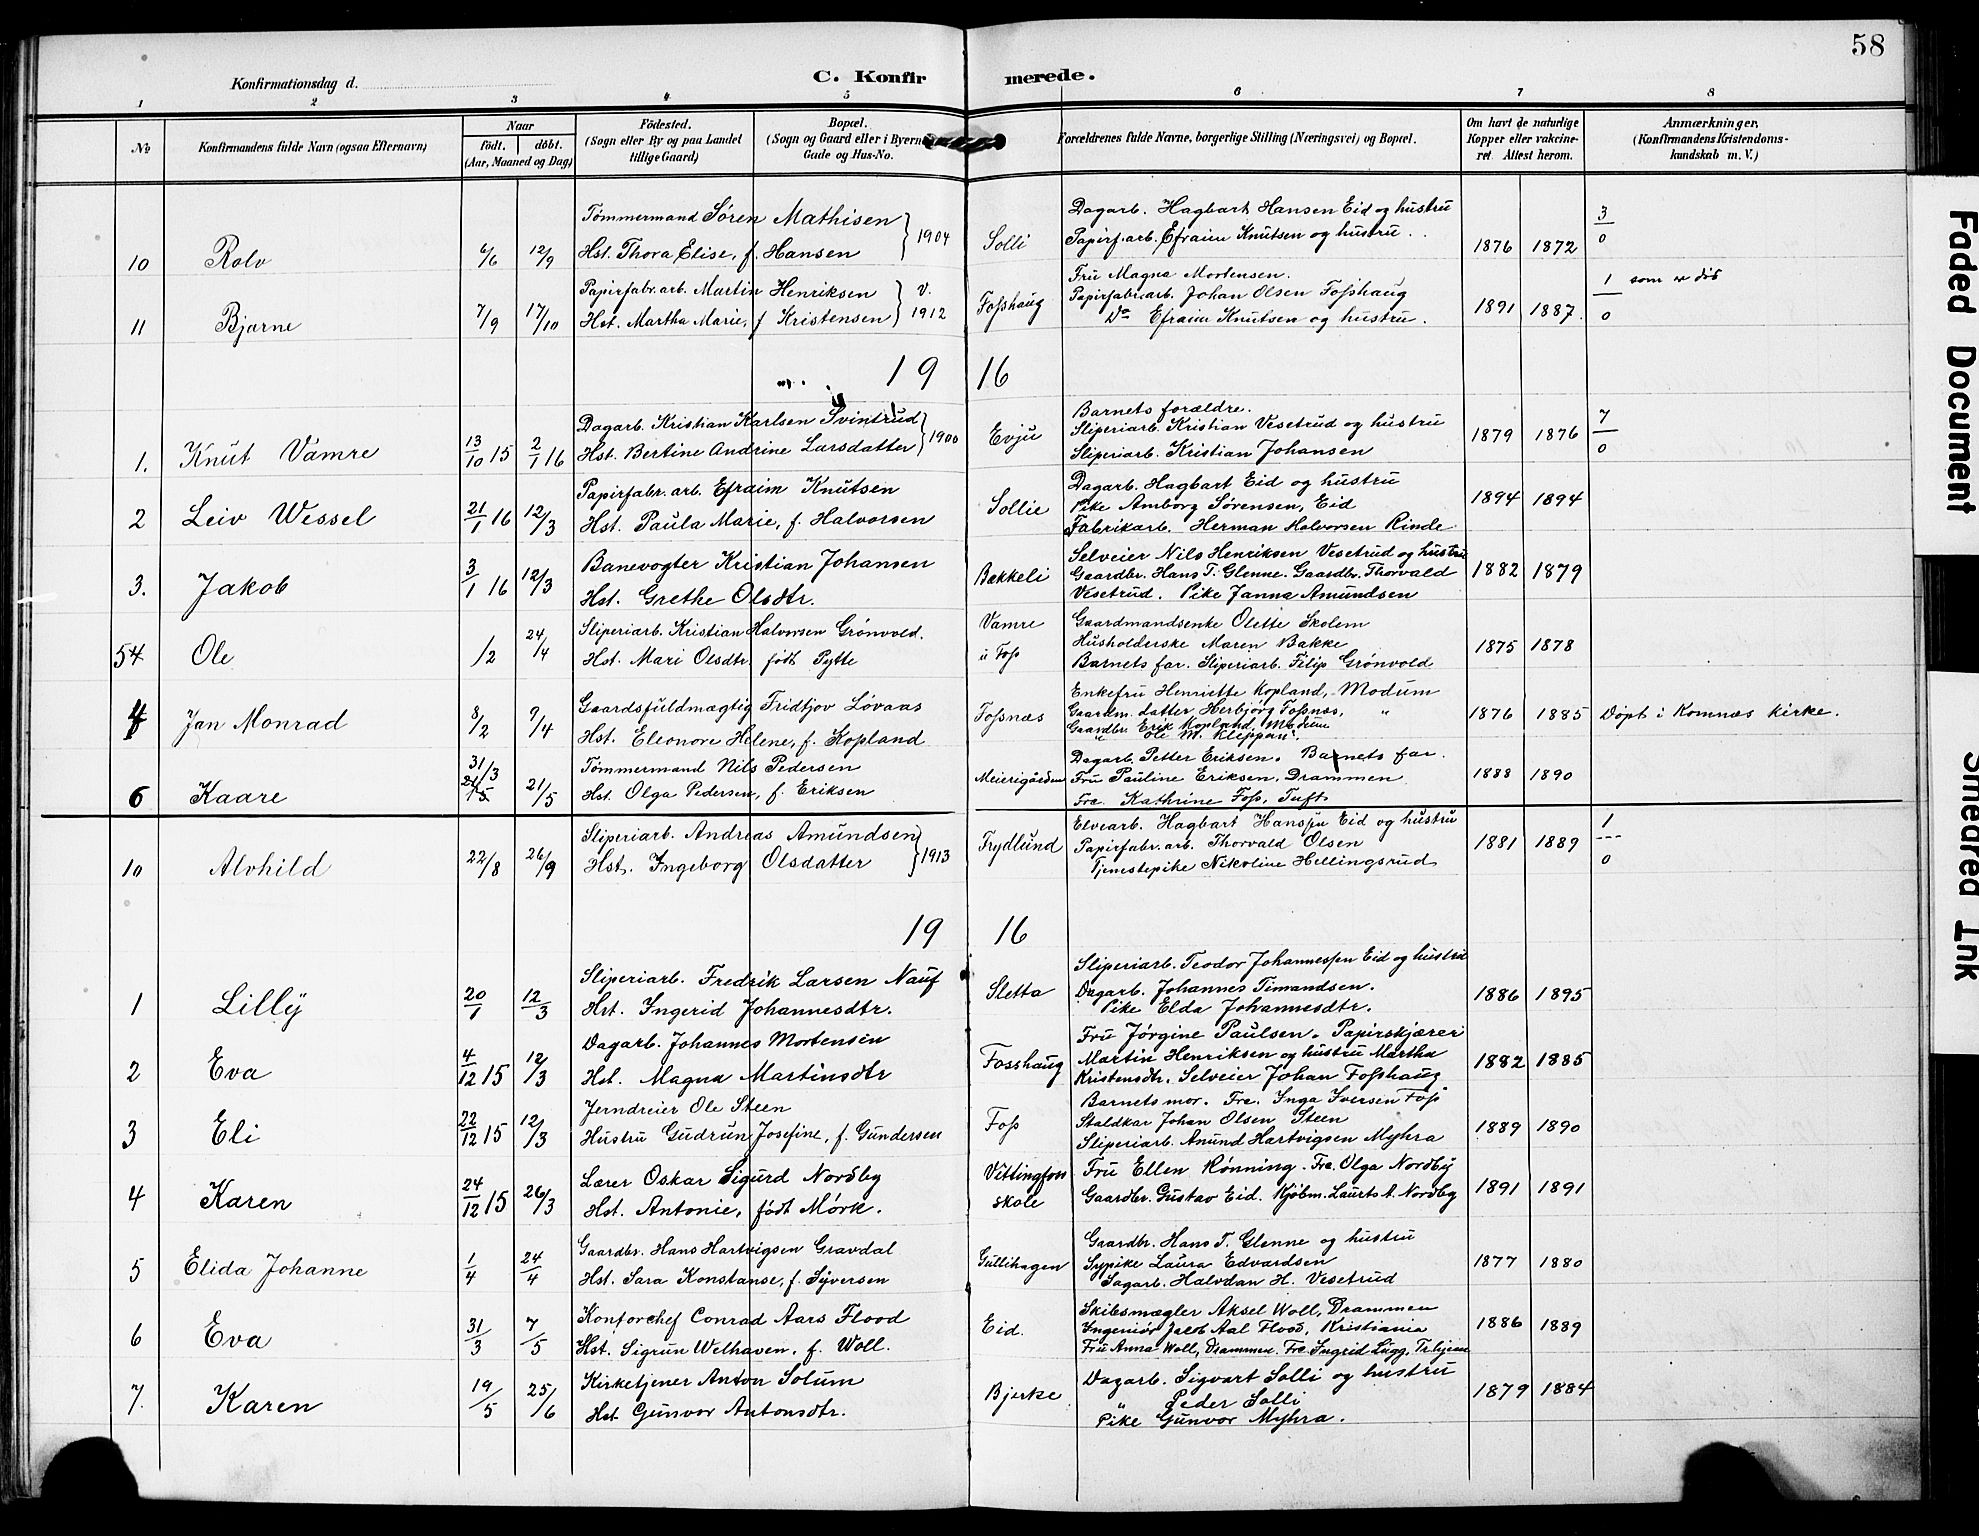 58
Konfirmationsdag d.
C. Konfirmerede.
1 2 3 4 5 6 7 8
No
Konfirmandens fulde Navn (ogsaa Efternavn)
Naar
født. døbt.
(Aar, Maaned og Dag)
Fødested.
(Sogn eller By og paa Landet
tillige Gaard)
Bopæl.
(Sogn og Gaard eller i Byerne
Gade og Hus-No.
Forældrenes fulde Navne, borgerlige Stilling (Næringsvei) og Bopæl.
Om havt de naturlige
Kopper eller vakcine-
ret. Attest herom.
Anmærkninger,
(Konfirmandens Kristendoms-
kundskab m. V.)
Tømmermand Søren Mathisen
Hst. Thora Elise, f. Hansen
1904
10 Rolv 6/6 12/9
Solli
Dagarb. Hagbart Hansen Eid og hustru
Papirf.arb. Efraim Knutsen og hustru
1876 1872
3/0
Papirfabr.arb. Martin Henriksen
Hst. Martha Marie, f Kristensen
v. 1912
11 Bjarne 7/9 17/10
Fosshaug
Fru Magna Mortensen.
Papirfabr.arb. Johan Olsen Fosshaug
Do Efraim Knutsen og hustru.
1891 1887
1/0 som er dø
1916
Dagarb. Kristian Karlsen Svintrud
Hst. Bertine Andrine Larsdatter
1900
1. Knut Vamre 13/10 15 2/1 16
Evju
Barnets forældre.
Sliperiarb. Kristian Vesetrud og hustru
Sliperiarb. Kristian Johansen
1879 1876
7/0
Papirfabr. arb. Efraim Knutsen
Hst. Paula Marie, f. Halvorsen
2 Leiv Wessel 21/1 16 12/3
Sollie
Dagarb. Hagbart Eid og hustru
Pike Amborg Sørensen, Eid
Fabrikarb. Herman Halvorsen Rinde
1894 1894
Banevogter Kristian Johansen
Hst. Grethe Olsdtr.
3. Jakob 3/1 16 12/3
Bakkeli
Selveier Nils Henriksen Vesetrud og hustru
Gaardbr. Hans T. Glenne. Gaardbr. Thorvald
Vesetrud. Pike Janna Amundsen
1882 1879
Sliperiarb. Kristian Halvorsen Grønvold.
Hst. Mari Olsdtr. født Pytte
54 Ole 1/2 24/4
Vamre
u Foss
Gaardmandsenke Olette Skolem
Husholderske Maren Bakke
Barnets far. Sliperiarb. Filip Grønvold
1875 1878
Gaardsfuldmægtig Fridtjov Løvaas
Hst. Eleonore Helene, f. Kopland
4 Jan Monrad 8/2 9/4
Fossnæs
Enkefru Henriette Kopland, Modum
Gaardm. datter Herbjørg Fossnæs, "
Gaardbr. Erik Kopland, Modum
" Ole M. Kleppan.
1876 1885
Døpt i Komnæs kirke.
Tømmermand Nils Pedersen
Hst. Olga Pedersen, f. Eriksen
6 Kaare 31/3 21/5
Meierigården
Dagarb. Petter Eriksen. Barnets far.
Fru Pauline Eriksen, Drammen
Frø. Kathrine Foss, Tuft
1888 1890
Sliperiarb. Andreas Amundsen
Hst. Ingeborg Olsdatter
1913
10 Alvhild 22/8 26/9
Frydlund
Elvearb. Hagbart Hansen Eid og hustru
Papirfabr.arb. Thorvald Olsen
Tjenestepike Nikoline Hellingsrud
1881 1889
1/0
1916
Sliperiarb. Fredrik Larsen Nauf
Hst. Ingerid Johannesdtr.
1 Lilly 20/1 12/3
Sletta
Sliperiarb. Teodor Johannessen Eid og hustru
Dagarb. Johannes Timandsen.
Pike Elda Johannesdtr.
1886 1895
Dagarb. Johannes Mortensen
Hst. Magna Martinsdtr
2 Eva 4/12 15 12/3
Fosshaug
Fru Jørgine Paulsen. Papirskjærer
Martin Henriksen og hustru Martha
Kristensdtr. Selveier Johan Fosshaug
1882 1885
Jerndreier Ole Steen
Hustru Gudrun Josefine, f. Gundersen
3 Eli 22/12 15 12/3
Foss
Barnets mor. Frø. Inga Iversen Foss
Staldkar Johan Olsen Steen
Sliperiarb. Anund Hartvigsen Myhra
1889 1890
Lærer Oskar Sigurd Nordby
Hst. Antonie, født Mørk.
4 Karen 24/12 15 26/3
Vittingfoss
skole
Fru Ellen Rønning. Frø. Olga Nordby
Gaardbr. Gustav Eid. Kjøbm. Laurts A. Nordby
1891 1891
Gaardbr. Hans Hartvigsen Gravdal
Hst. Sara Konstanse, f. Syversen
5 Elida Johanne 1/4 24/4
Gullihagen
Gaardbr. Hans T. Glenne og hustru
Sypike Laura Edvardsen
Sagarb. Halvdan H. Vesetrud
1877 1880
Kontorchef Conrad Aars Flood
Hst. Sigrun Welhaven, f. Woll.
6 Eva 31/3 7/5
Eid.
Skibsmægler Aksel Woll, Drammen
Ingeniør Jacob Aal Flood, Kristiania
Fru Anna Woll, Drammen. Frø. Ingrid Lugg,
1886 1889
Kirketjener Anton Solum
Hst Gunvor Antonsdtr.
7. Karen 19/5 25/6
Bjerke
Dagarb. Sigvart Solli og hustru
" Peder Solli
Pike Gunvor Myhra.
1879 1884
Faded Document
Smeared Ink